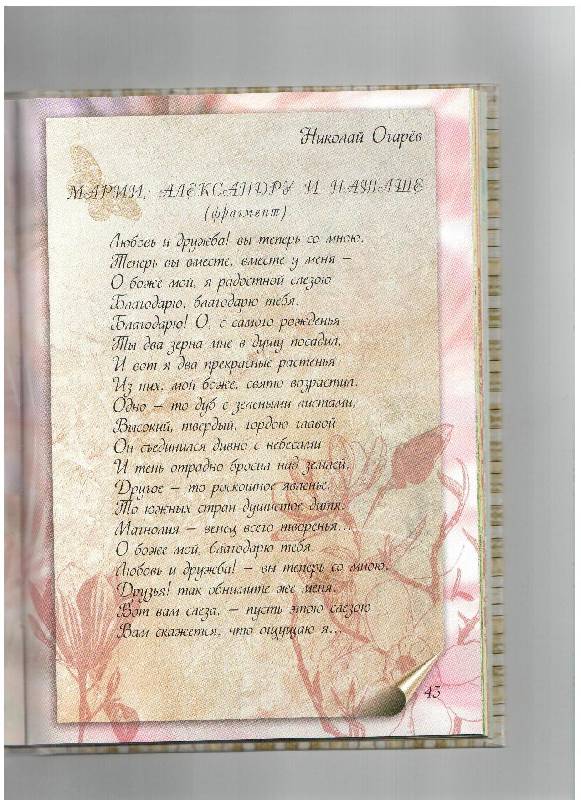 Николай Огарёв
МАРИИ, АЛЕКСАНДРУ И НАТАШЕ
(фрагмент)
Любовь и дружба! вы теперь со мною,
Теперь вы вместе, вместе у меня –
О боже мой, я радостной слезою
Благодарю, благодарю тебя.
Благодарю! О, с самого рожденья
Ты два зерна мне в душу посадил,
И вот я два прекрасные растенья
Из них, мой боже, свято возрастил.
Одно – то дуб с зелеными листами,
Высокий, твердый, гордою главой
Он съединился дивно с небесами
И тень отрадно бросил над землей,
Другое – то роскошное явленье,
То южных стран душистое дитя,
Магнолия – венец всего творенья...
О боже мой, благодарю тебя.
Любовь и дружба! – вы теперь со мною,
Друзья! так обнимите же меня.
Вот вам слеза, – пусть этою слезою
Вам скажется, что ощущаю я...
43